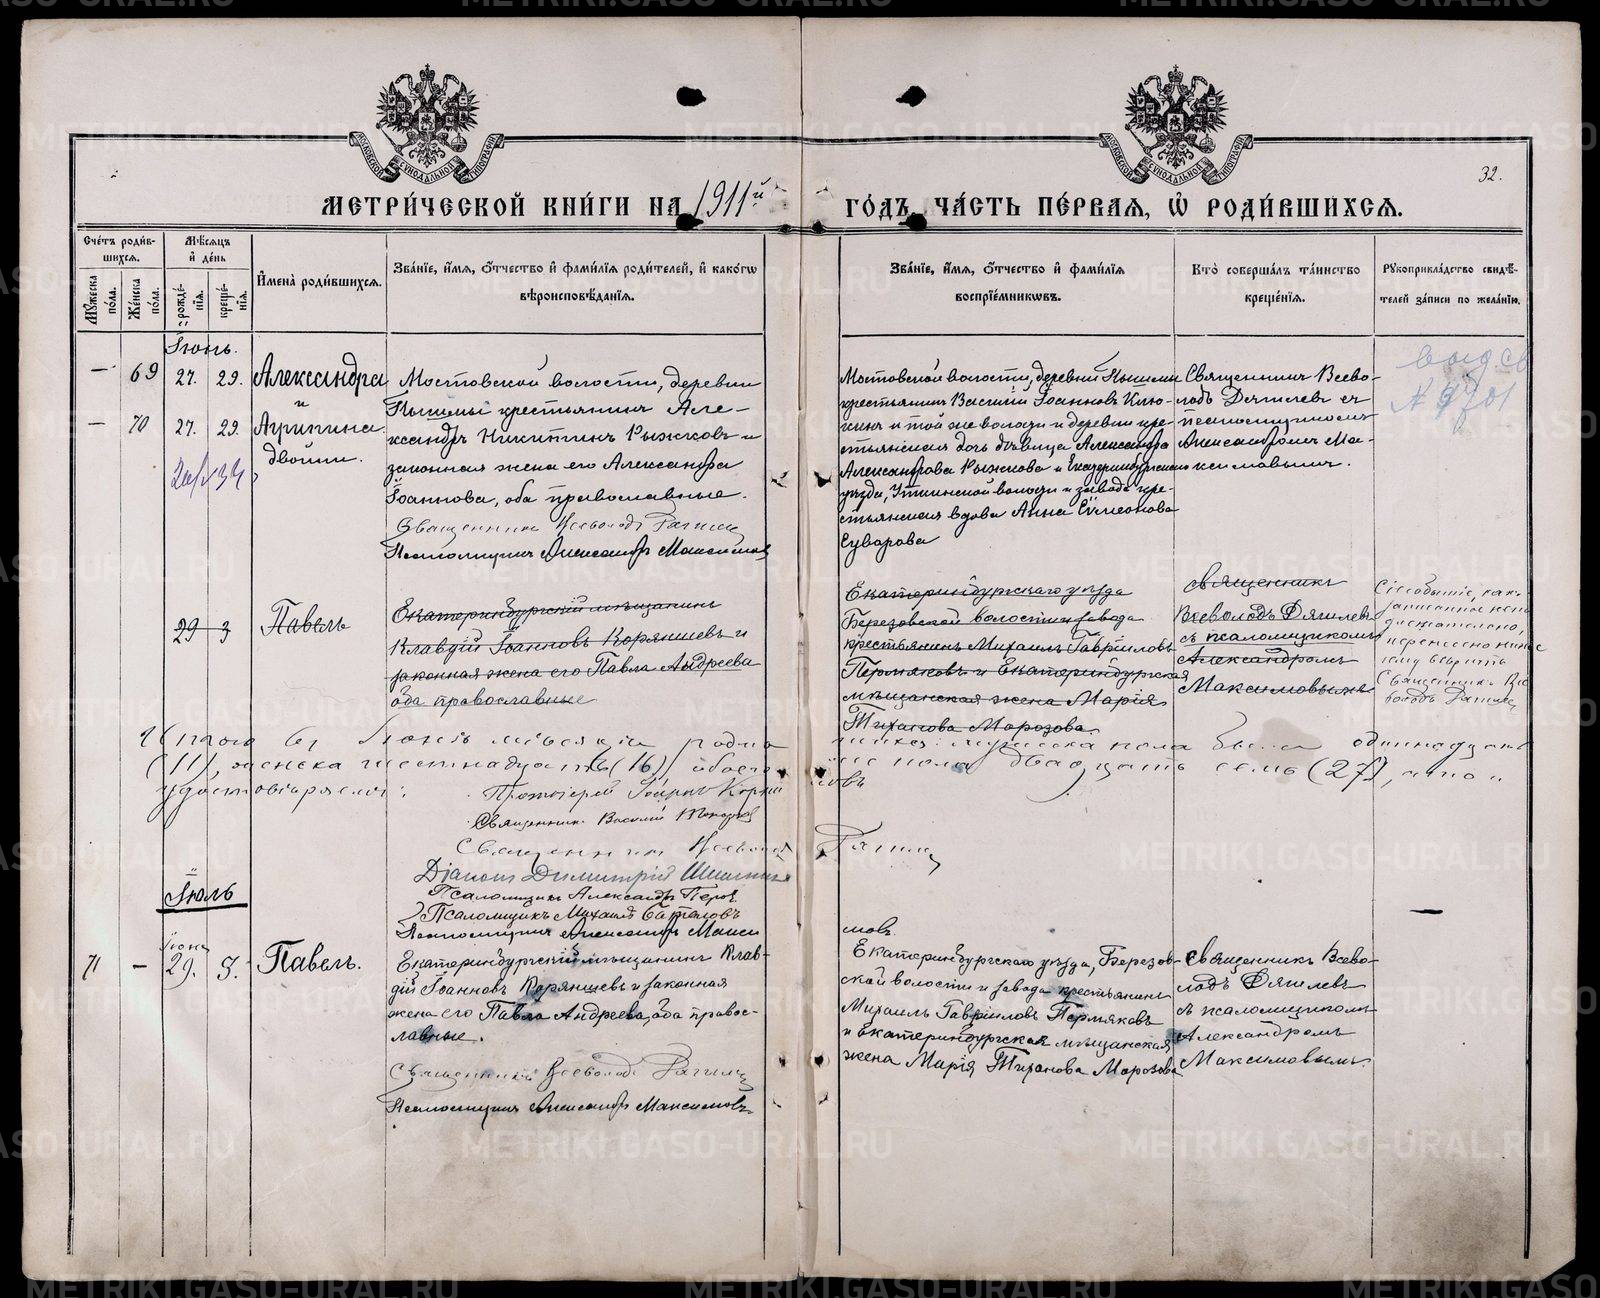 32.
МЕТРИ́ЧЕСКОЙ КНИ́ГИ НА 1911й ГО́ДЪ, ЧА́СТЬ ПЕ́РВАЯ, Ѡ РОДИ́ВШИХСЯ.
Сче́тъ роди́в-
шихся.
Мѣ́сяцъ
и҆ де́нь
Мꙋ́жеска по́ла.
Же́нска по́ла.
рожде́-
нїя.
креще́-
нїя.
И҆мена̀ роди́вшихся.
Зва́нїе, и҆́мя, ѻ҆́тчество и҆ фами́лїя роди́телей, и҆ како́гѡ
вѣроисповѣ́данїя.
Зва́нїе, и҆́мя, ѻ҆́тчество и҆ фами́лїя
воспрїе́мникѡвъ.
Кто̀ соверша́лъ та́инство
креще́нїя.
Рꙋкоприкла́дство свидѣ́-
телей за́писи по жела́нїю.
Іюнь.
— 69 27. 29. Александра
и
— 70 27. 29. Агрипина
двойни.
Мостовской волости, деревни
Пышмы крестьянинъ Але-
ксандръ Никитинъ Рыжковъ и
законная жена его Александра
Іоаннова, оба православные.
Священникъ Всеволодъ Дягилевъ
Псаломщикъ Александръ Максимовъ
Мостовской волости, деревни Пышмы
крестьянинъ Василій Іоанновъ Клю-
кинъ и той же волости и деревни кре-
стьянская дочь дѣвица Александра
Александрова Рыжкова и Екатеринбургскаго
уѣзда, Уткинской волости и завода кре-
стьянская вдова Анна
Суварова
Священникъ Всево-
лодъ Дягилевъ съ
псаломщикомъ
Александромъ Ма-
ксимовымъ.
29 3 Павелъ
Екатеринбургскій мѣщанинъ
Клавдій Іоанновъ Корянцевъ и
законная жена его Павла Андреева
оба православные
Екатеринбургскаго уѣзда
Березовской волости и завода
крестьянинъ Михаилъ Гавриловъ
Пермяковъ и Екатеринбургская
мѣщанская жена Марія
Тиханова Морозова.
Священникъ
Всеволодъ Дягилевъ
съ псаломщикомъ
Александромъ
Максимовымъ
Сіе событіе, какъ
записанное
перенесено
Священникъ Все-
володъ Дягилевъ
Итого въ Іюнѣ мѣсяцѣ родилось: мужеска пола было одиннадцать
(11), женска шестнадцать (16), обоего пола двадцать семь (27), что и
удостовѣряемъ:
Протоіерей Іоаннъ
Священникъ Василій
Священникъ Всеволодъ Дягилевъ
Діаконъ Димитрій
Псаломщикъ Александръ
Псаломщикъ Михаилъ
Псаломщикъ Александръ Максимовъ.
Іюль
—
Іюнь
71 — 29. 3. Павелъ.
Екатеринбургскій мѣщанинъ Клав-
дій Іоанновъ Корянцевъ и законная
жена его Павла Андреева, оба правос-
лавные.
Священникъ Всеволодъ Дягилевъ
Псаломщикъ Александръ Максимовъ
Екатеринбургскаго уѣзда, Березов-
ской волости и завода крестьянинъ
Михаилъ Гавриловъ Пермяковъ
и Екатеринбургская мѣщанская
жена Марія Тиханова Морозова
Священникъ Всево-
лодъ Дягилевъ
съ псаломщикомъ
Александромъ
Максимовымъ.